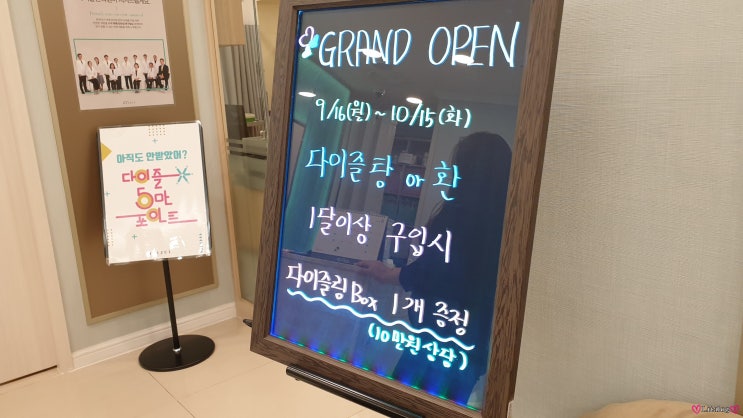 GRAND OPEN
9/16(월) ~ 10/15(화)
다이즐탕 or 환
1달이상 구입시
다이즐링 Box 1개 증정
(10만원 상당)
아직도 안받았어?
다이줄
5만
포인트